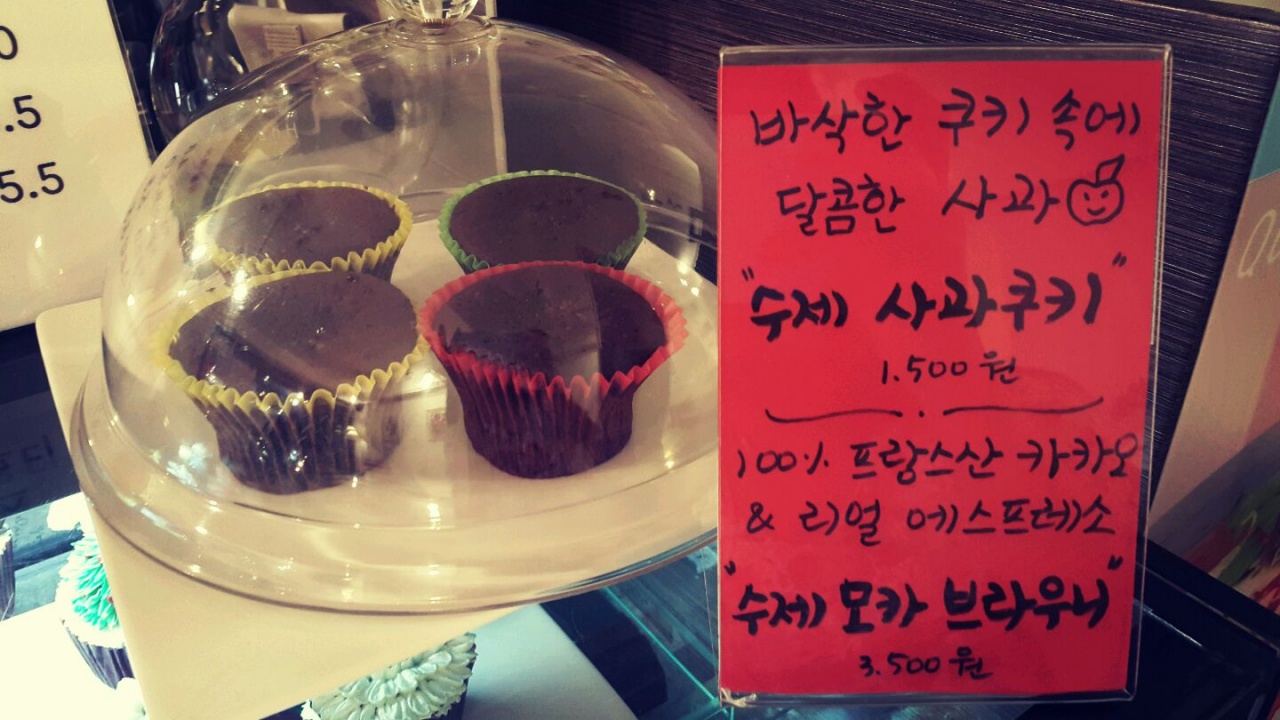 .5
5.5
바삭한 쿠키 속에
달콤한 사과
"수제 사과쿠키"
1.500원
100% 프랑스산 카카오
& 리얼 에스프레소
"수제 모카 브라우니"
3.500원